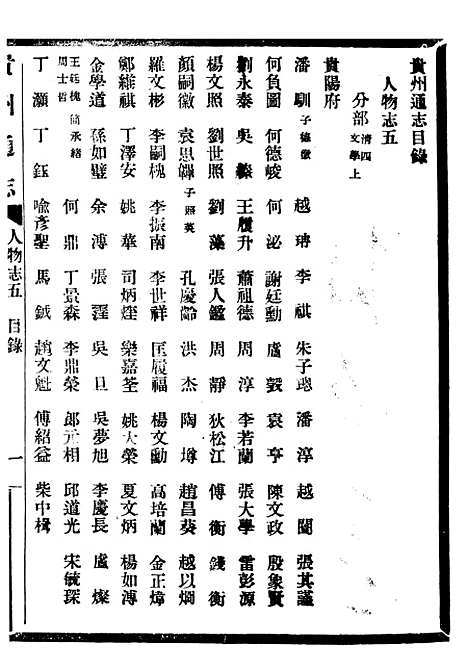 貴州通志目錄
人物志五
分部 清四 文學上
貴陽府
潘馴 子德徵 越珃 李祺 朱子璁 潘淳 越闓 張其謹
何負圖 何德峻 何泌 謝廷勳 盧彀 袁亨 陳文政 殷象賢
劉永泰 吳 王履升 蕭祖德 周淳 李若蘭 張大學 雷彭源
楊文照 劉世照 劉藻 張人鑑 周靜 狄松江 傅衡 錢衡
顏嗣徽 袁思韠 子照英 孔慶齡 洪杰 陶墫 趙昌葵 越以燗
羅文彬 李嗣槐 李振南 李世祥 匡履福 楊文勳 高培蘭 金正煒
鄭維祺 丁澤安 姚華 司炳煃 樂嘉荃 姚大榮 夏文炳 楊如溥
金學道 孫如璧 余溥 張霪 吳旦 吳夢旭 李慶長 盧燦
王廷槐 簡承緒 周士哲 何鼎 丁景森 李鼎榮 郎元相 邱道光 宋毓琛
丁灝 丁鈺 喻彥聖 馬鉞 趙文魁 傅紹益 柴中楫
貴州通志 人物志五 目錄 一